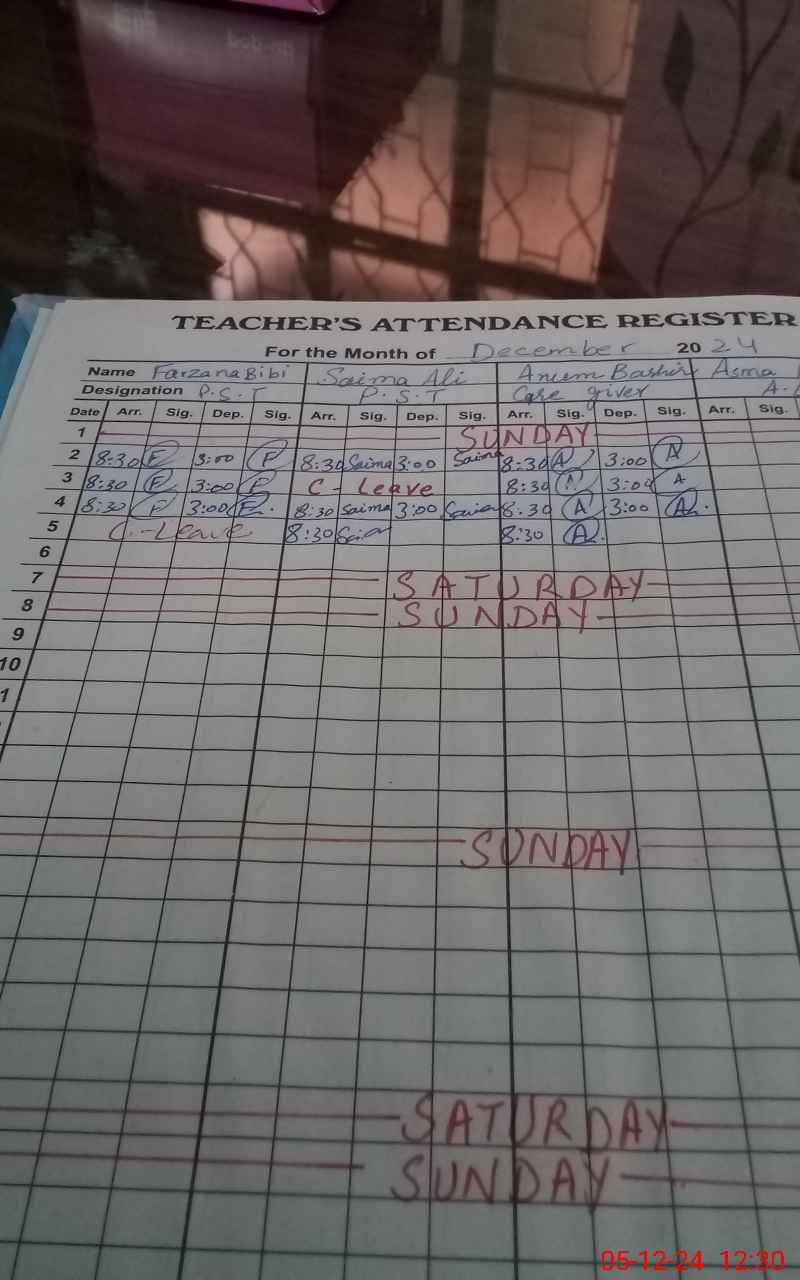 TEACHER'S ATTENDANCE REGISTER
For the Month of December 2024
Name Farzana Bibi Saima Ali Anum Bashir Asma
Designation P.S.T P.S.T Care giver
Date Arr. Sig. Dep. Sig. Arr. Sig. Dep. Sig. Arr. Sig. Dep. Sig. Arr. Sig.
1 SUNDAY
2 8:30 F 3:00 F 8:30 Saima 3:00 Saima 8:30 A 3:00 A
3 8:30 F 3:00 F C - Leave 8:30 A 3:00 A
4 8:30 F 3:00 F 8:30 Saima 3:00 8:30 A 3:00 A
5 C.-Leave 8:30 8:30 A
6
7 SATURDAY
8 SUNDAY
9
10
1
SUNDAY
SATURDAY
SUNDAY
05-12-24 12:30